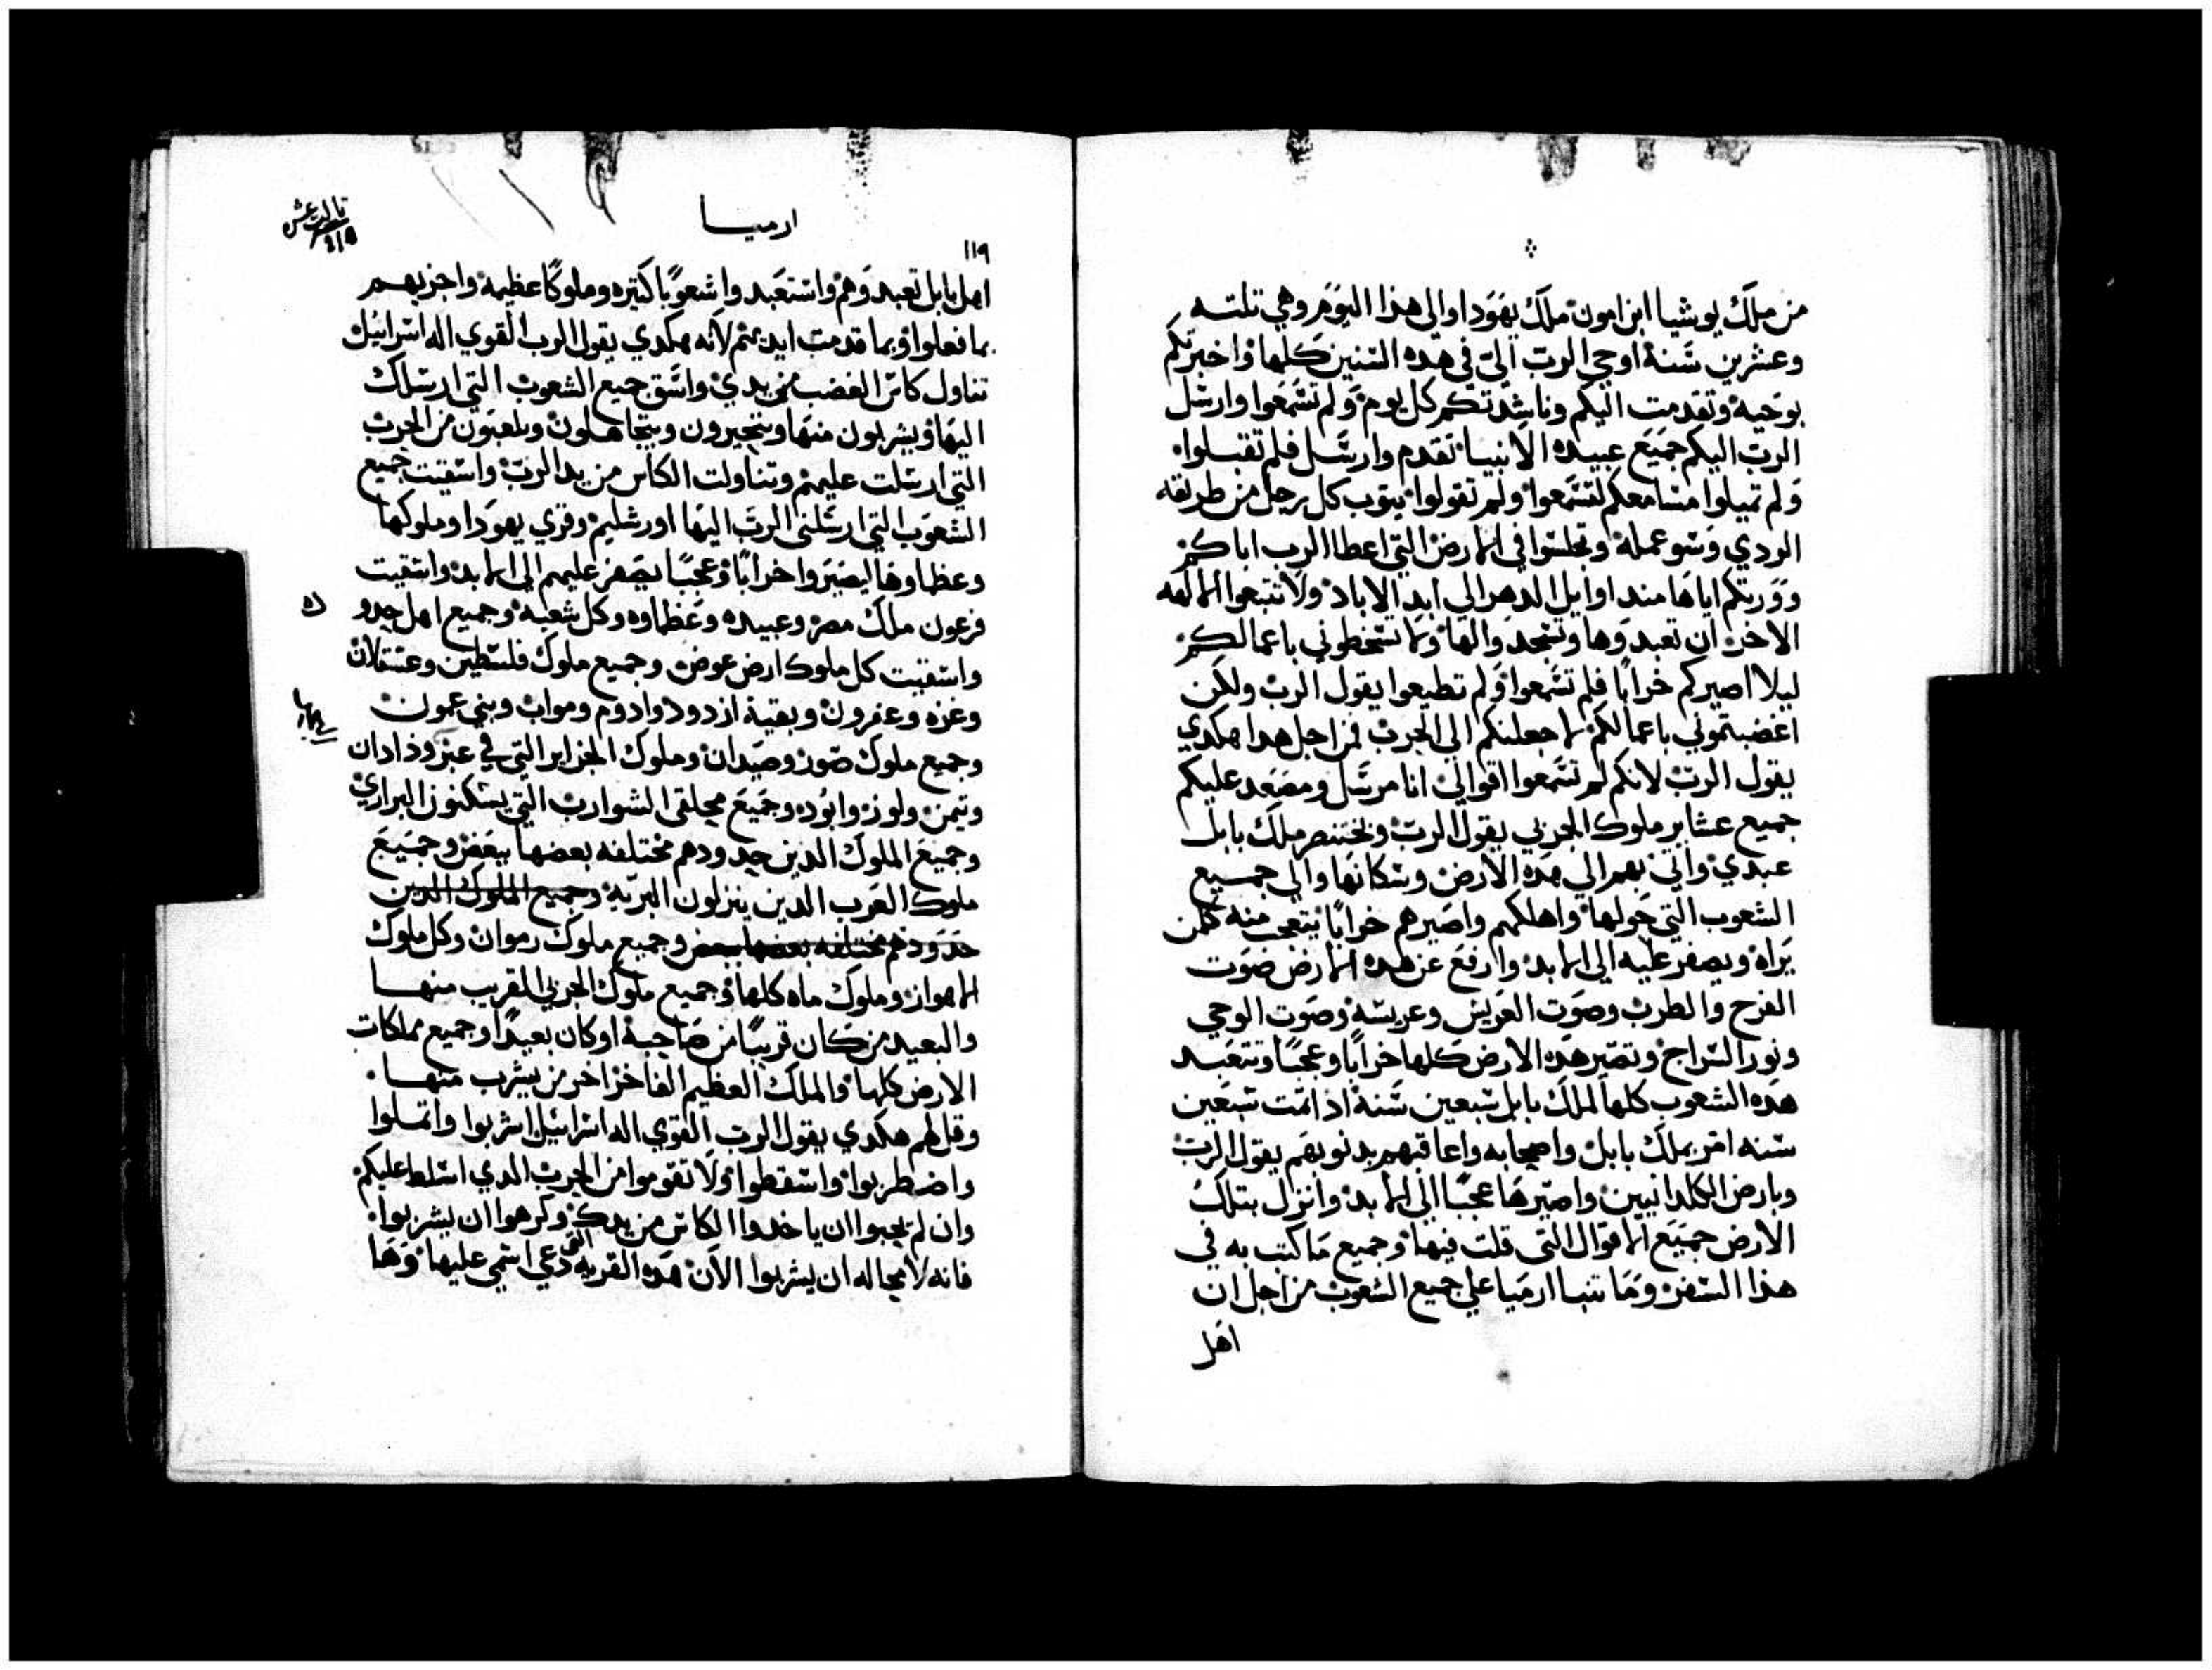 من ملك يوشيا ابن امون ملك يهودا والي هذا اليوم وهي تلته
وعشرين سنة اوحي الرب الي في هده السنين كلها واخبرتكم
بوحيه وتقدمت اليكم وناشدتكم كل يوم ولم تسمعوا وارسل
الرب اليكم جميع عبيده الانبيا تقدم وارسل فلم تقبلوا
ولم تميلوا مسامعكم لتسمعوا ولم تقولوا يتوب كل رجل من طريقه
الردي وسو عمله وتجلسوا في الارض التي اعطا الرب اباكم
وورتكم اياها مند اوايل الدهر الي ابد الاباد ولا تتبعوا الالهه
الاخر ان تعبدوها وتسجدوا لها ولا تسخطوني باعمالكم
ليلا اصيركم خرابا فلم تسمعوا ولم تطيعوا يقول الرب ولكن
اغضبتموني باعمالكم لاجعلنكم الي الحرب فمن اجل هدا هكدي
يقول الرب لانكم لم تسمعوا اقوالي انا مرسل ومصعد عليكم
جميع عشاير ملوك الجربي يقول الرب وبختنصر ملك بابل
عبدي واتي بهم الي هده الارض وسكانها والي جميع
الشعوب التي حولها واهلكهم واصيرهم خرابا يتعجب منه كلمن
يراه ويصفر عليه الي الابد وارفع عن هده الارض صوت
الفرح والطرب وصوت العريس وعريسه وصوت الوحي
ونور السراج وتصير هده الارض كلها خرابا وعجبا وتتعبد
هده الشعوب كلها لملك بابل سبعين سنة اد اتمت سبعين
سنه امر بملك بابل واصحابه واعاقبهم بدنوبهم يقول الرب
وبارض الكلدانيين واصيرها عجبا الي الابد وانزل بتلك
الارض جميع الاقوال التي قلت فيها وجميع ما كتب به في
هذا السفر وما تنبا ارميا علي جميع الشعوب من اجل ان
اهل
ارميا
١١٩
اهل بابل تعبدوهم واستعبدوا شعوبا كتيره وملوكا عظيمه واجزيهم
بما فعلوا وبما قدمت ايديهم لانه هكدي يقول الرب القوي اله اسراييل
تناول كاس الغضب من يدي واسق جميع الشعوب التي ارسلك
اليها ويشربون منها ويتحيرون ويتجاهلون ويلعبون من الحرب
التي ارسلت عليهم وتناولت الكاس من يد الرب واسقيت جميع
الشعوب التي ارسلني الرب اليها اورشليم وقري يهودا وملوكها
وعظماوها ليصيروا خرابا وعجبا يصفر عليهم الي الابد واسقيت
فرعون ملك مصر وعبيده وعظماوه وكل شعبه وجميع اهل حدو
واسقيت كل ملوك ارض عوض وجميع ملوك فلسطين وعسقلان
وعزه وعفرون وبقية ازدود وادوم ومواب وبني عمون
وجميع ملوك صور وصيدان وملوك الجزاير التي في عبر وذادان
وتيمن ولوز وابوده وجميع محلقي الشوارب التي يسكنون البراري
وجميع الملوك الدين حدودهم مختلفه بعضها ببعض وجميع
ملوك العرب الدين ينزلون البريه وجميع الملوك الدين
حدودهم مختلفه بعضها ببعض وجميع ملوك رموان وكل ملوك
الاهواز وملوك ماه كلها وجميع ملوك الجربي القريب منها
والبعيد من كان قريبا من صاحبه او كان بعيدا وجميع مملكات
الارض كلها والملك العظيم الفاخر اخر من يشرب منها
وقل لهم هكدي يقول الرب القوي اله اسراييل اشربوا واتملوا
واضطربوا واسقطوا ولا تقوموا من الحرب الدي اسلط عليكم
وان لم يحبوا ان ياخدوا الكاس من يدك وكرهوا ان يشربوا
فانه لا محاله ان يشربوا الان هده القريه التي دعي اسمي عليها وها